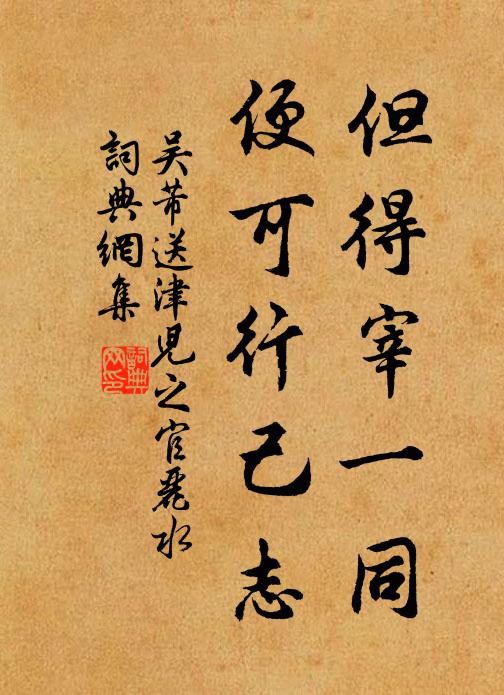 但得宰一同
便可行己志
吴芾送津児之官麗水
詞典網集
詞典網印